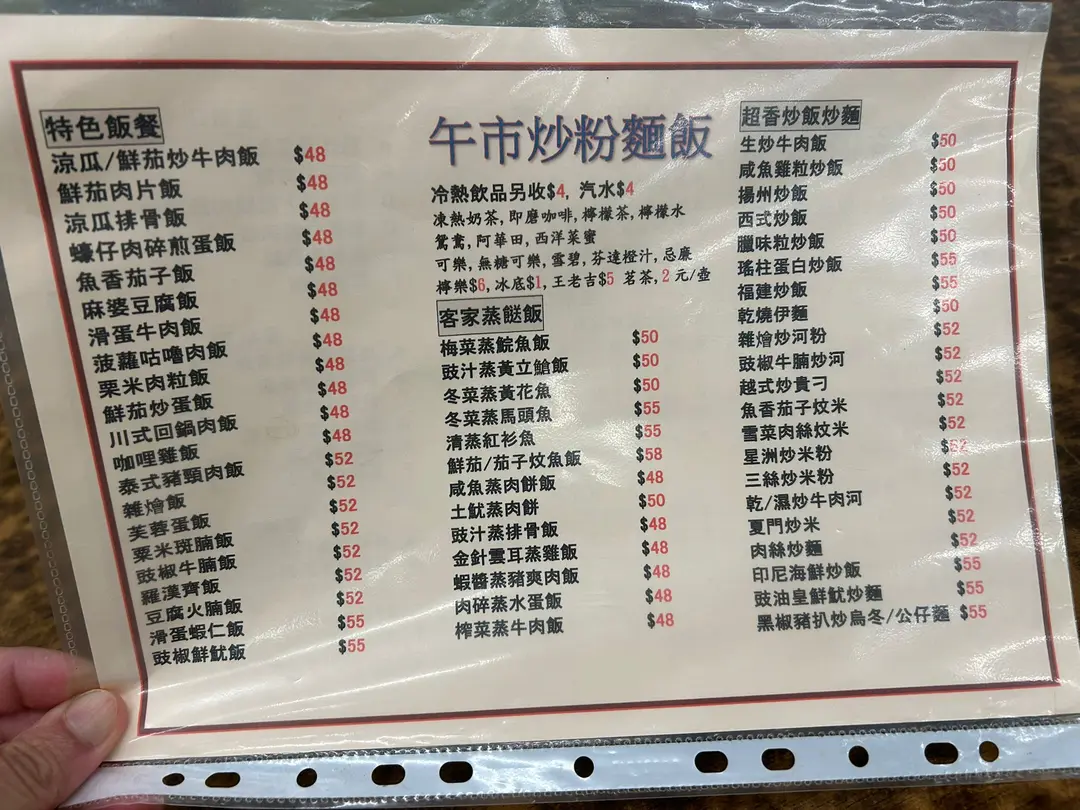 特色飯餐
涼瓜/鮮茄炒牛肉飯 $48
鮮茄肉片飯 $48
涼瓜排骨飯 $48
蠔仔肉碎煎蛋飯 $48
魚香茄子飯 $48
麻婆豆腐飯 $48
滑蛋牛肉飯 $48
菠蘿咕嚕肉飯 $48
栗米肉粒飯 $48
鮮茄炒蛋飯 $48
川式回鍋肉飯 $48
咖哩雞飯 $48
泰式豬頸肉飯 $52
雜燴飯 $52
芙蓉蛋飯 $52
粟米斑腩飯 $52
豉椒牛腩飯 $52
羅漢齊飯 $52
豆腐火腩飯 $52
滑蛋蝦仁飯 $55
豉椒鮮魷飯 $55
午市炒粉麵飯
冷熱飲品另收$4, 汽水$4
凍熱奶茶, 即磨咖啡, 檸檬茶, 檸檬水
鴛鴦, 阿華田, 西洋菜蜜
可樂, 無糖可樂, 雪碧, 芬達橙汁, 忌廉
檸樂$6, 冰底$1, 王老吉$5 茗茶, 2 元/壺
客家蒸餸飯
梅菜蒸鯇魚飯 $50
豉汁蒸黃立鯧飯 $50
冬菜蒸黃花魚 $50
冬菜蒸馬頭魚 $55
清蒸紅衫魚 $55
鮮茄/茄子炆魚飯 $58
咸魚蒸肉餅飯 $48
土魷蒸肉餅 $50
豉汁蒸排骨飯 $48
金針雲耳蒸雞飯 $48
蝦醬蒸豬爽肉飯 $48
肉碎蒸水蛋飯 $48
榨菜蒸牛肉飯 $48
超香炒飯炒麵
生炒牛肉飯 $50
咸魚雞粒炒飯 $50
揚州炒飯 $50
西式炒飯 $50
臘味粒炒飯 $50
瑤柱蛋白炒飯 $55
福建炒飯 $55
乾燒伊麵 $50
雜燴炒河粉 $52
豉椒牛腩炒河 $52
越式炒貴刁 $52
魚香茄子炆米 $52
雪菜肉絲炆米 $52
星洲炒米粉 $52
三絲炒米粉 $52
乾/濕炒牛肉河 $52
夏門炒米 $52
肉絲炒麵 $52
印尼海鮮炒飯 $55
豉油皇鮮魷炒麵 $55
黑椒豬扒炒烏冬/公仔麵 $55